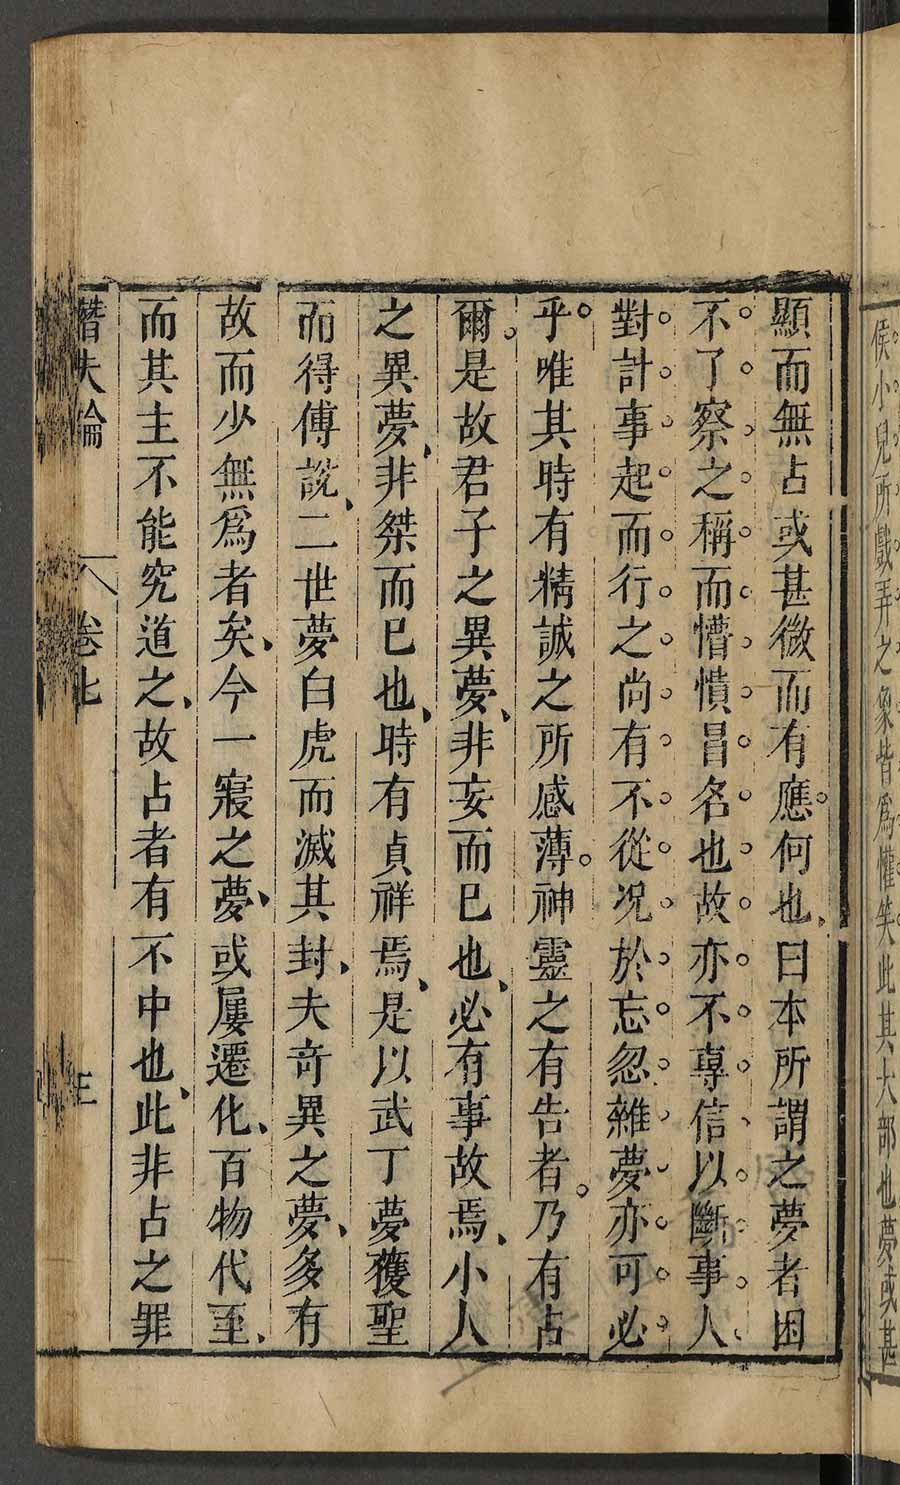 侯小兒所戲弄之象皆爲懽笑此其大部也夢或甚
顯而無占或甚微而有應何也曰本所謂之夢者困
不了察之稱而懵憒昌名也故亦不專信以斷事人
對計事起而行之尚有不從况於忘忽雜夢亦可必
乎唯其時有精誠之所感薄神靈之有告者乃有占
爾是故君子之異夢非妄而已也必有事故焉小人
之異夢非桀而已也時有貞祥焉是以武丁夢獲聖
而得傅說二世夢白虎而滅其封夫奇異之夢多有
故而少無爲者矣今一寢之夢或屢遷化百物代至
而其主不能究道之故占者有不中也此非占之罪
潛夫論 卷七 三